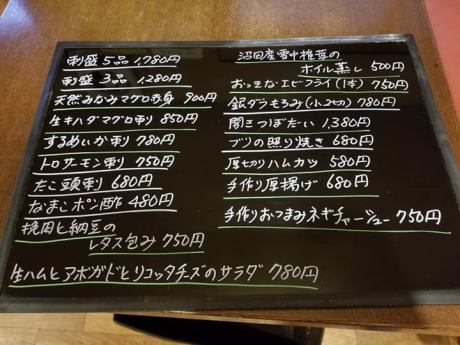 刺盛5品 1,780円
刺盛3品 1,280円
天然みなみマグロ赤身 900円
生キハダマグロ刺 850円
するめいか刺 780円
トロサーモン刺 750円
たこ頭刺 680円
なまこポン酢 480円
挽肉と納豆の
レタス包み 750円
生ハムとアボガドとリコッタチーズのサラダ 780円
沼田産雪中椎茸の
ホイル蒸し 500円
おっきなエビフライ(1本) 750円
銀ダラもろみ(小2切) 780円
開きつぼだい 1,380円
ブリの照り焼き 680円
厚切りハムカツ 580円
手作り厚揚げ 680円
手作りおつまみネギチャーシュー 750円